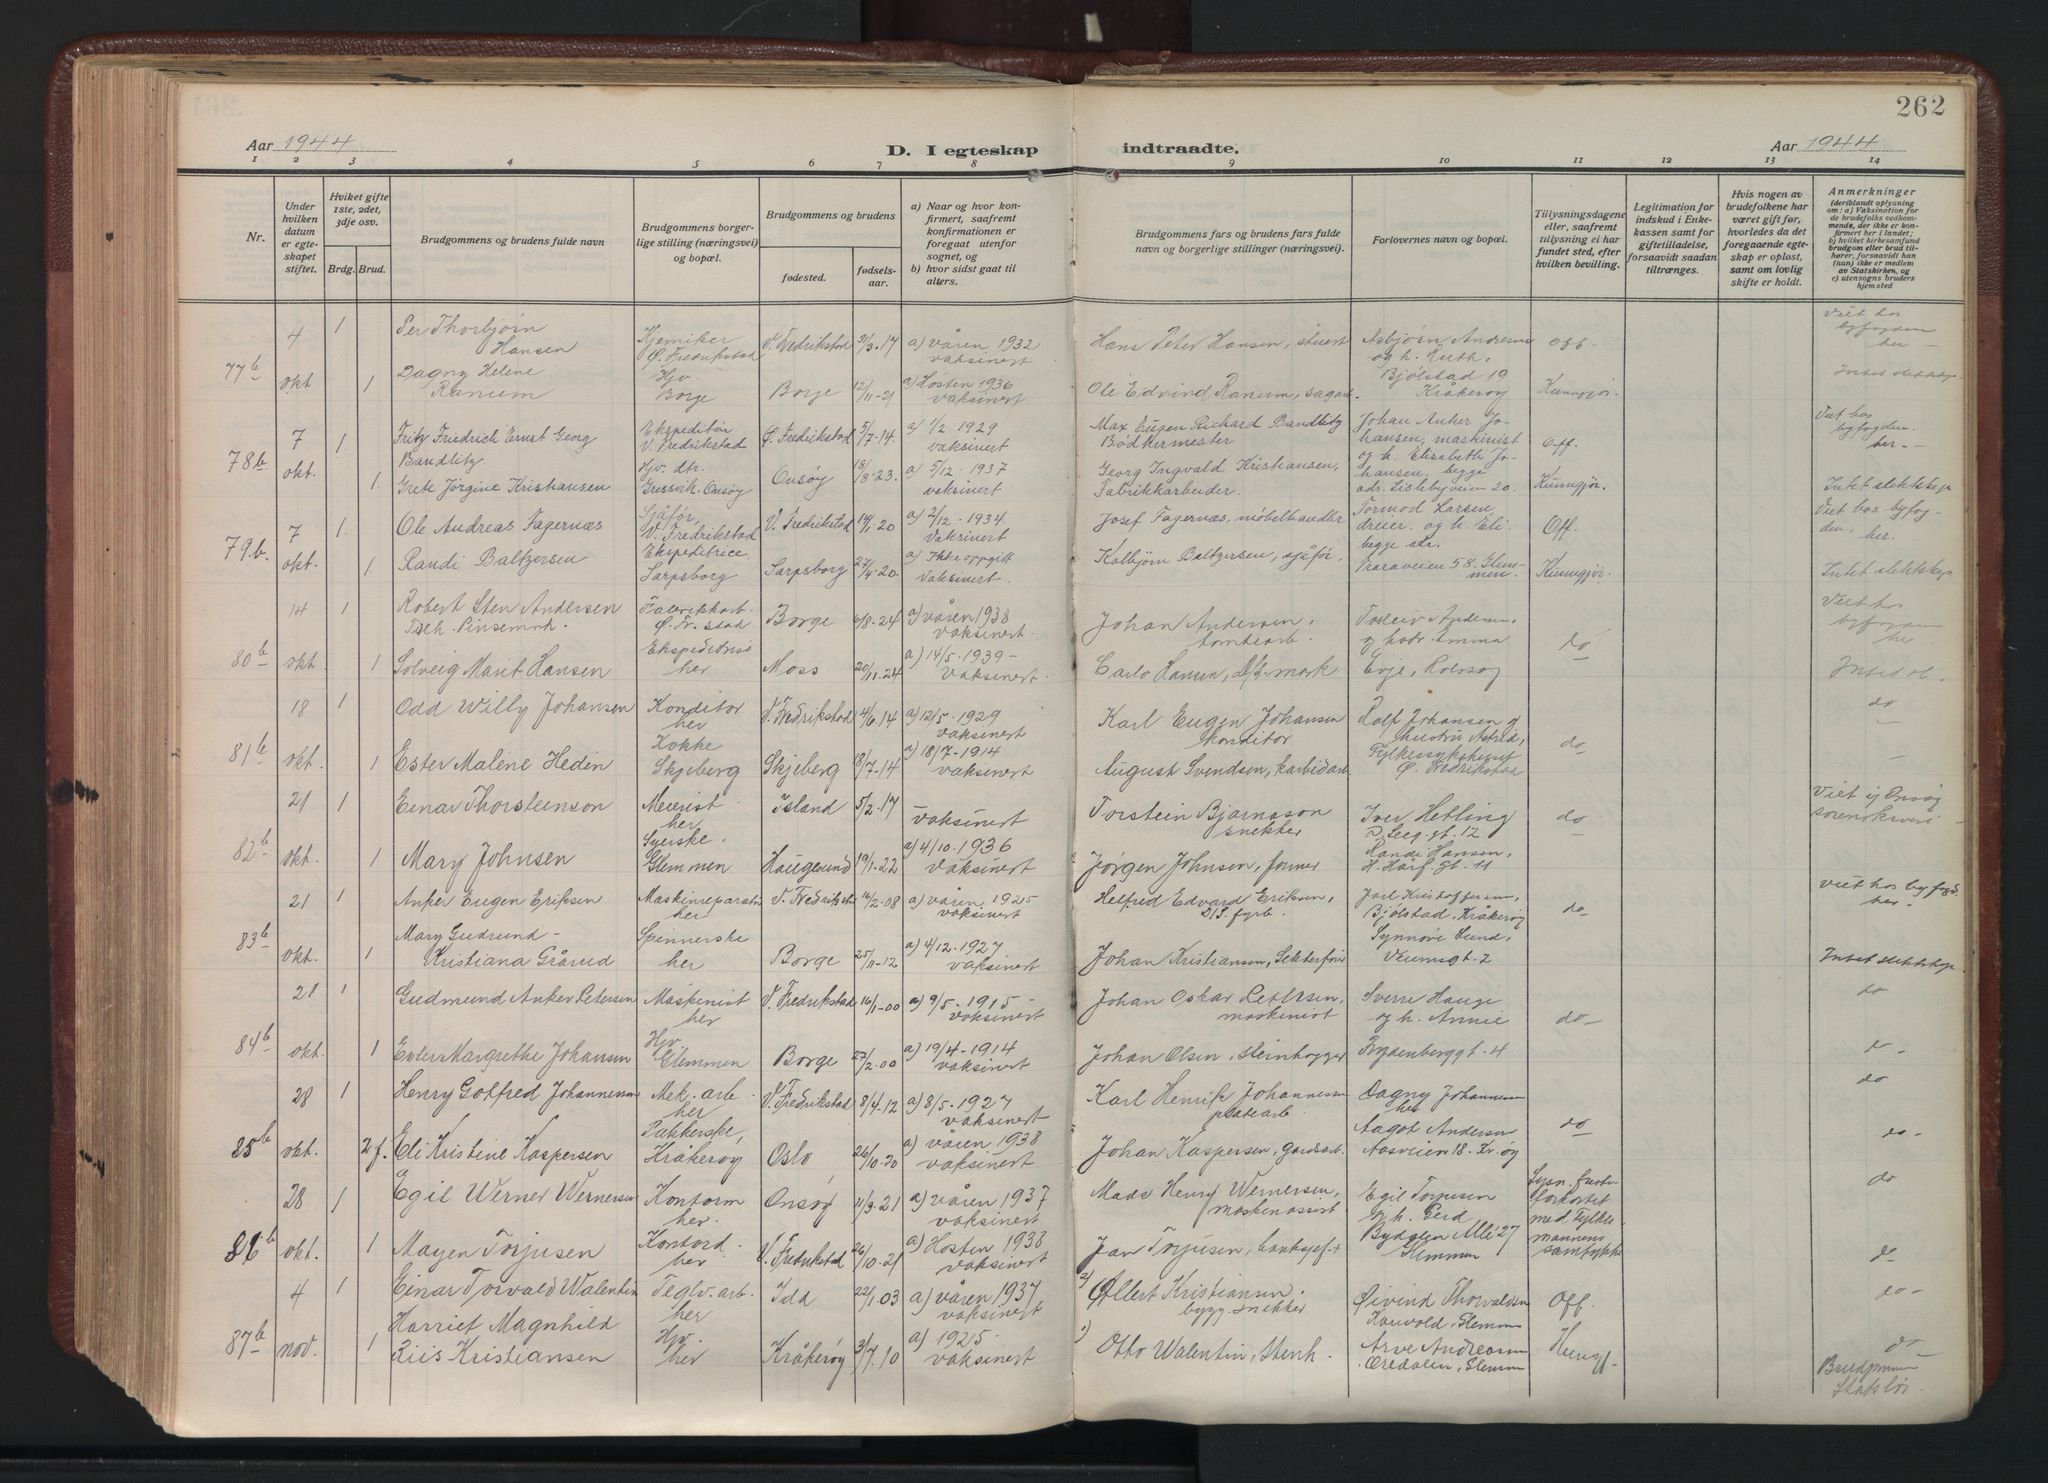 262
Aar 1944
D. I egteskap
indtraadte.
Aar 1944
1 2 3 4 5 6 7 8 9 10 11 12 13 14
Nr.
Under hvilken datum er egteskapet stiftet.
Hviket gifte 1ste, 2det, 3dje osv.
Brdg. Brud.
Brudgommens og brudens fulde navn
Brudgommens borgerlige stilling (næringsvei) og bopæl.
Brudgommens og brudens
fødested.
fødselsaar.
a) Naar og hvor konfirmert, saafremt konfirmationen er foregaat utenfor sognet, og
b) hvor sidst gaat til alters.
Brudgommens fars og brudens fars fulde navn og borgerlige stillinger (næringsvei).
Forlovernes navn og bopæl.
Tillysningsdagene eller, saafremt tillysning ei har fundet sted, efter hvilken bevilling.
Legitimation for indskud i Enkekassen samt for giftetilladelse, forsaavidt saadan tiltrænges.
Hvis nogen av brudefolkene har været gift før, hvorledes da det foregaaende egteskap er opløst, samt om lovlig skifte er holdt.
Anmerkninger
(deriblandt oplysning om: a) Vaksination for de brudefolks vedkommende, der ikke er konfirmert her i landet; b) hvilket kirkesamfund brudgom eller brud tilhører, forsaavidt han (hun) ikke er medlem av Statskirken, og c) utensogns bruders hjemsted
77b 4 1 Per Thorbjørn Hansen Kjemiker Ø. Fredrikstad V. Fredrikstad 9/3.17 a) våren 1932 vaksinert Hans Peter Hansen, stuert Asbjørn og h. Ruth, Off. Viet hos byfogden her
okt 1 Dagny Helene Ranum Hjv. Borge Borge 12/11-21 a) Høsten 1936 vaksinert Ole Edvind Ranum, sagarb. Bjølstad 19 Kråkerøy Kunngjør.
78b 7 1 Fritz Friedrich Ernst Georg Bandlitz Ekspeditør V. Fredrikstad Ø. Fredrikstad 5/7-14. a) 1/2 1929 vaksinert Max Eugen Richard Bandlitz Bødkermester Johan Anker Johansen, maskinist Off. Viet hos byfogden her.
okt. 1. Grete Jørgine Kristiansen Hjv. dtr. Gressvik, Onsøy Onsøy 18/8.23. a) 5/12. 1937 vaksinert Georg Ingvald Kristiansen, Fabrikkarbeider. og h. Elisabeth Johansen, begge adr. Lislebyveien 20. Kunngjør. Intet slektskap
79b. 7 1. Ole Andreas Fagernæs Sjåfør, V. Fredrikstad V. Fredrikstad 14/1.20 a) 2/12. 1934 Vaksinert Josef Fagernæs, møbelhandler Tormod Larsen, dreier. og h. Eli begge adr. Off. Viet hos byfogden, her.
okt. 1 Randi Baltzersen Ekspeditrice Sarpsborg Sarpsborg 27/4.20. a) Ikke oppgitt Vaksinert. Kolbjørn Baltzersen, sjåfør Traraveien 58. Glemmen. Kunngjør. Intet slektskap
80b 14 1 Robert Sten Andersen Tilh. Pinsemnh. Fabrikkarb. Ø. Fr.stad Borge 6/8-24 a) våren 1938 vaksinert Johan Andersen, tomtearb. Andersen, Emma do Viet hos byfogden her
okt. 1 Solveig Marit Hansen Ekspeditrise her Moss 20/11.24 a) 14/5. 1939 - vaksinert. Carlo Hansen, Evje, Rolvsøy
81b 18 1 Odd Willy Johansen Konditor her V. Fredrikstad 4/6.14 a) 12/5. 1929 vaksinert Karl Eugen Johansen konditor Rolf Johansen og hustru Astrid, do do
okt. 1 Ester Malene Hedin Kokke Skjeberg Skjeberg 18/7-14 a) 18/7-1914 vaksinert August Svendsen, karbidarb Fylkessykehuset Ø. Fredrikstad
82b 21 1 Einar Thorsteinson Meierist her Island 5/2.17 - vaksinert Torstein Bjarnason snekker Iver Hetling gt. 12 do Viet
okt. 1 Mary Johnsen Syerske. Glemmen Haugesund 19/1.22 a) 4/10. 1936 vaksinert Jørgen Johnsen, former Randi Hansen, H. Hårf. gt. 11
83b 21 1 Anker Eugen Eriksen Maskinreparatør her V. Fredrikst. 16/2-08 a) våren 1925 vaksinert Helfred Edvard Eriksen, D/S. fyrb. Jarl Kristoffersen, Bjølstad, Kråkerøy do Viet hos byfogd. her.
okt. 1 Mary Gudrund - Kristiana Gårud Spinnerske her Borge 25/11-12 a) 4/12. 1927 vaksinert Johan Kristiansen, Synnøve Lund, Veumsgt. 2 Intet slektskap
84b 21 1 Gudmund Anker Petersen Maskinist her V. Fredrikstad 16/1-00 a) 9/5. 1915 - vaksinert Johan Oskar Petersen, maskinist Sverre Hauge og h. Annie do - do
okt. 1 Ester Margrethe Johansen Hjv. Glemmen Borge 27/2.00 a) 19/4-1914 vaksinert Johan Olsen, steinhogger Frydenberggt. 4 do
85b 28 1 Henry Gotfred Johannessen Mek. arb. her V. Fredrikstad 8/4.12 a) 8/5. 1927 vaksinert Karl Henrik Johannessen platearb. Dagny Johannessen her do do
okt. 2 f. Eli Kristine Kaspersen Pakkerske, Kråkerøy Oslo 26/10.20 a) våren 1938 vaksinert Johan Kaspersen, gårdsarb. Aagot Andersen Aasveien 18. Kr.øy do -
86b 28 1 Egil Werner Wernersen Kontorm her. Onsøy 11/3.21 a) våren 1937 vaksinert Mads Henry Wernersen, maskinassist. Egil Torjusen og h. Gerd forkortet med Fylkesmannens samtykke do
okt. 1 Mayen Torjusen Kontord. her V. Fredrikstad 26/10.21 a) Høsten 1938 vaksinert Jan Torjusen, banksjef Bydalen Alle 27 Glemmen do
87b 4 1 Einar Torvald Walentin Teglv. arb. her Idd 22/1.03 a) våren 1937 vaksinert 2) Ollert Kristiansen. bygg. snekker Øivind Thorvaldsen Off. do -
nov. 1 Harriet Magnhild Riis Kristiansen Hjv. her Kråkerøy 3/7.10 a) 1925 - vaksinert 1) Otto Walentin, Stenh. Arve Andreassen Oredalen, Glemm. Kungj. do
Brudgommen Statsløs.